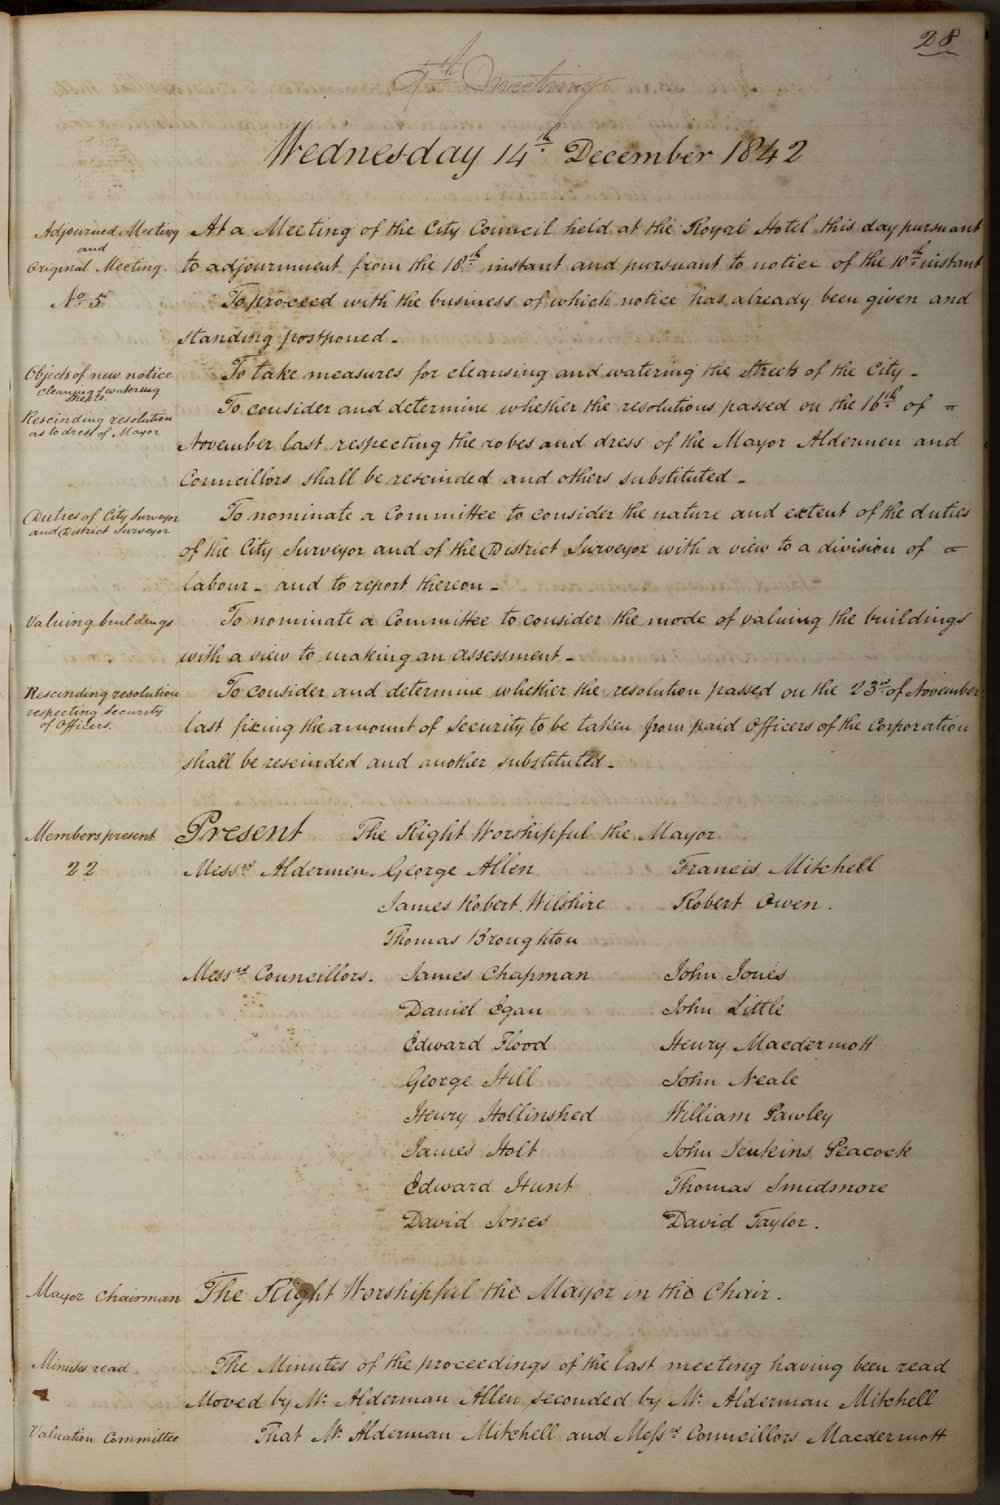 28
4th Meeting
Wednesday 14th December 1842
Adjourned Meeting
and
Original Meeting.
No. 5
At a Meeting of the City Council held at the Royal Hotel this day pursuant
to adjournment from the 18th instant and pursuant to notice of the 10th instant
To proceed with the business of which notice has already been given and
standing postponed -
Objects of new notice
Cleaning & watering
Streets
To take measures for cleansing and watering the Streets of the City -
Rescinding resolution
as to dress of Mayor
To consider and determine whether the resolutions passed on the 16th of =
November last respecting the robes and dress of the Mayor Aldermen and
Councillors shall be rescinded and others substituted -
Duties of City Surveyor
and District Surveyor
To nominate a Committee to consider the nature and extent of the duties
of the City Surveyor and of the District Surveyor with a view to a division of =
labour - and to report thereon -
Valuing buildings
To nominate a Committee to consider the mode of valuing the buildings
with a view to making an assessment -
Rescinding resolution
respecting Security
of Officers.
To consider and determine whether the resolution passed on the 23rd of November
last fixing the amount of Security to be taken from paid Officers of the Corporation
shall be rescinded and another substituted -
Members present
22
Present The Right Worshipful the Mayor
Messrs Aldermen. George Allen Francis Mitchell
James Robert Wilshire Robert Owen.
Thomas Broughton
Messrs Councillors. James Chapman John Jones
Daniel Egan John Little
Edward Flood Henry Macdermott
George Hill John Neale
Henry Hollinshed William Pawley
James Holt John Jenkins Peacock
Edward Hunt Thomas Smidmore
David Jones David Taylor.
Mayor Chairman The Right Worshipful the Mayor in the Chair.
Minutes read
The Minutes of the proceedings of the last meeting having been read
Moved by Mr. Alderman Allen seconded by Mr. Alderman Mitchell
Valuation Committee
That Mr. Alderman Mitchell and Messrs Councillors Macdermott